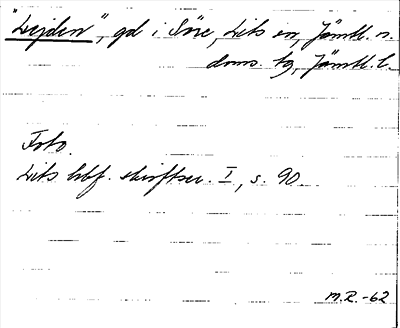 "Lejden", gd i Söre, Lits sn, Jämtl. n.
doms. tg, Jämtl. l.
Foto.
Lits hbf. skriftser. I, s. 90.
M.R.-62